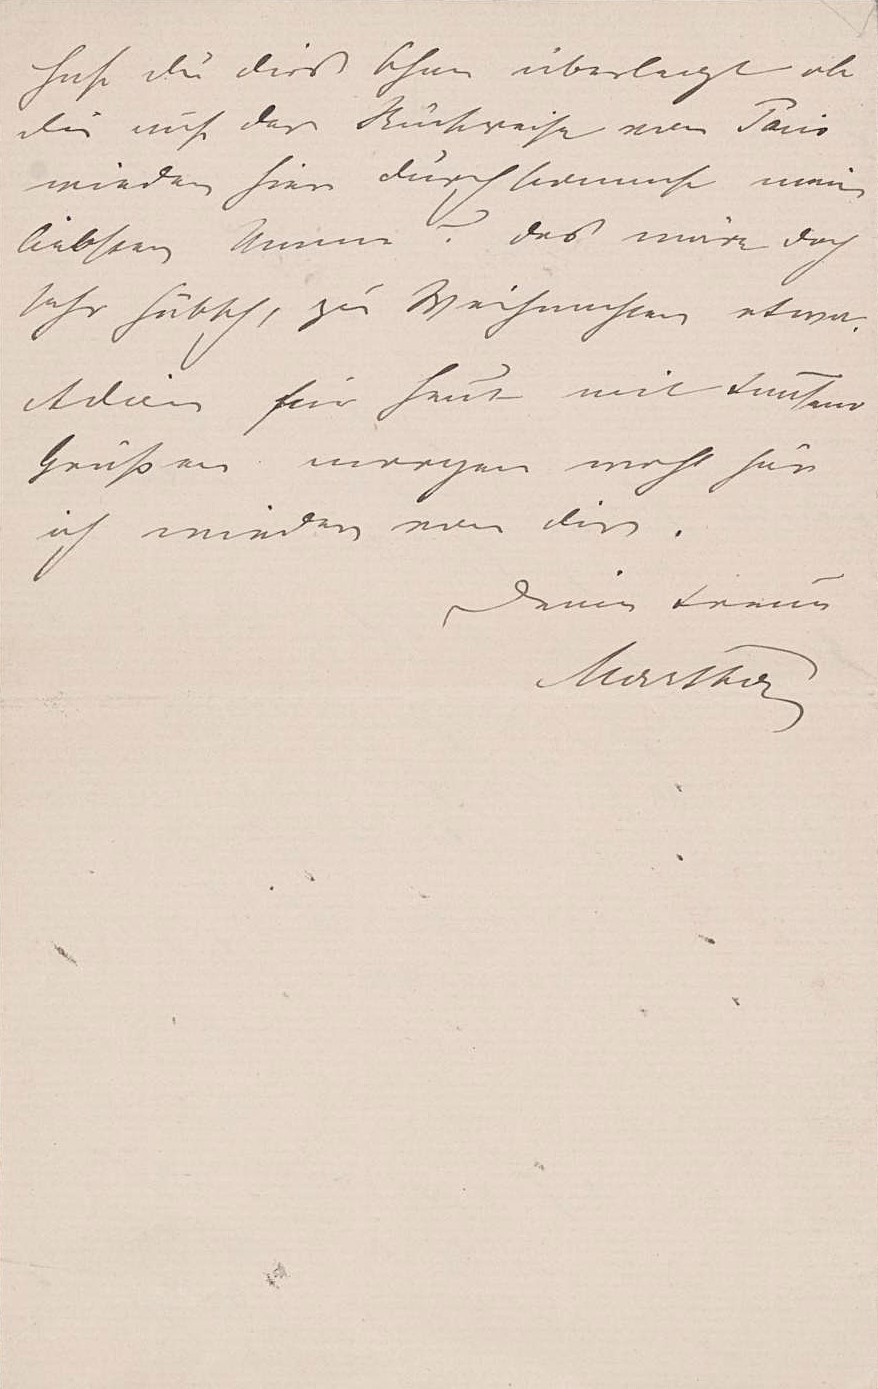 Hast du dirs schon überlegt ob
du auf der Rückreise von Paris
wieder hier durchkommst mein
liebster Mann? das wäre doch
sehr hübsch, zu Weihnachten etwa.
Adieu für heut mit tausend
Grüßen morgen mehr hör
ich wieder von dir.
Deine treue
Martha